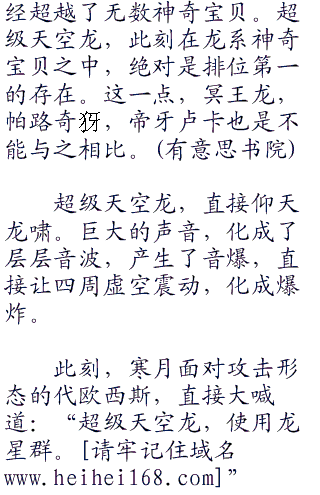 经超越了无数神奇宝贝。超
级天空龙，此刻在龙系神奇
宝贝之中，绝对是排位第一
的存在。这一点，冥王龙，
帕路奇犽，帝牙卢卡也是不
能与之相比。(有意思书院)
超级天空龙，直接仰天
龙啸。巨大的声音，化成了
层层音波，产生了音爆，直
接让四周虚空震动，化成爆
炸。
此刻，寒月面对攻击形
态的代欧西斯，直接大喊
道：“超级天空龙，使用龙
星群。[请牢记住域名
www.heihei168.com]”